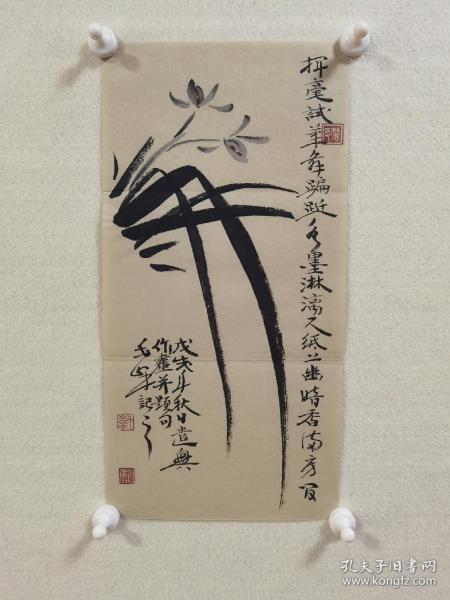 揮毫試筆舞蹁跹水墨淋漓尺紙上幽暗香滿房間
戊戌年秋日遣興
作畫并題句
記之
孔夫子旧书网
www.kongfz.com